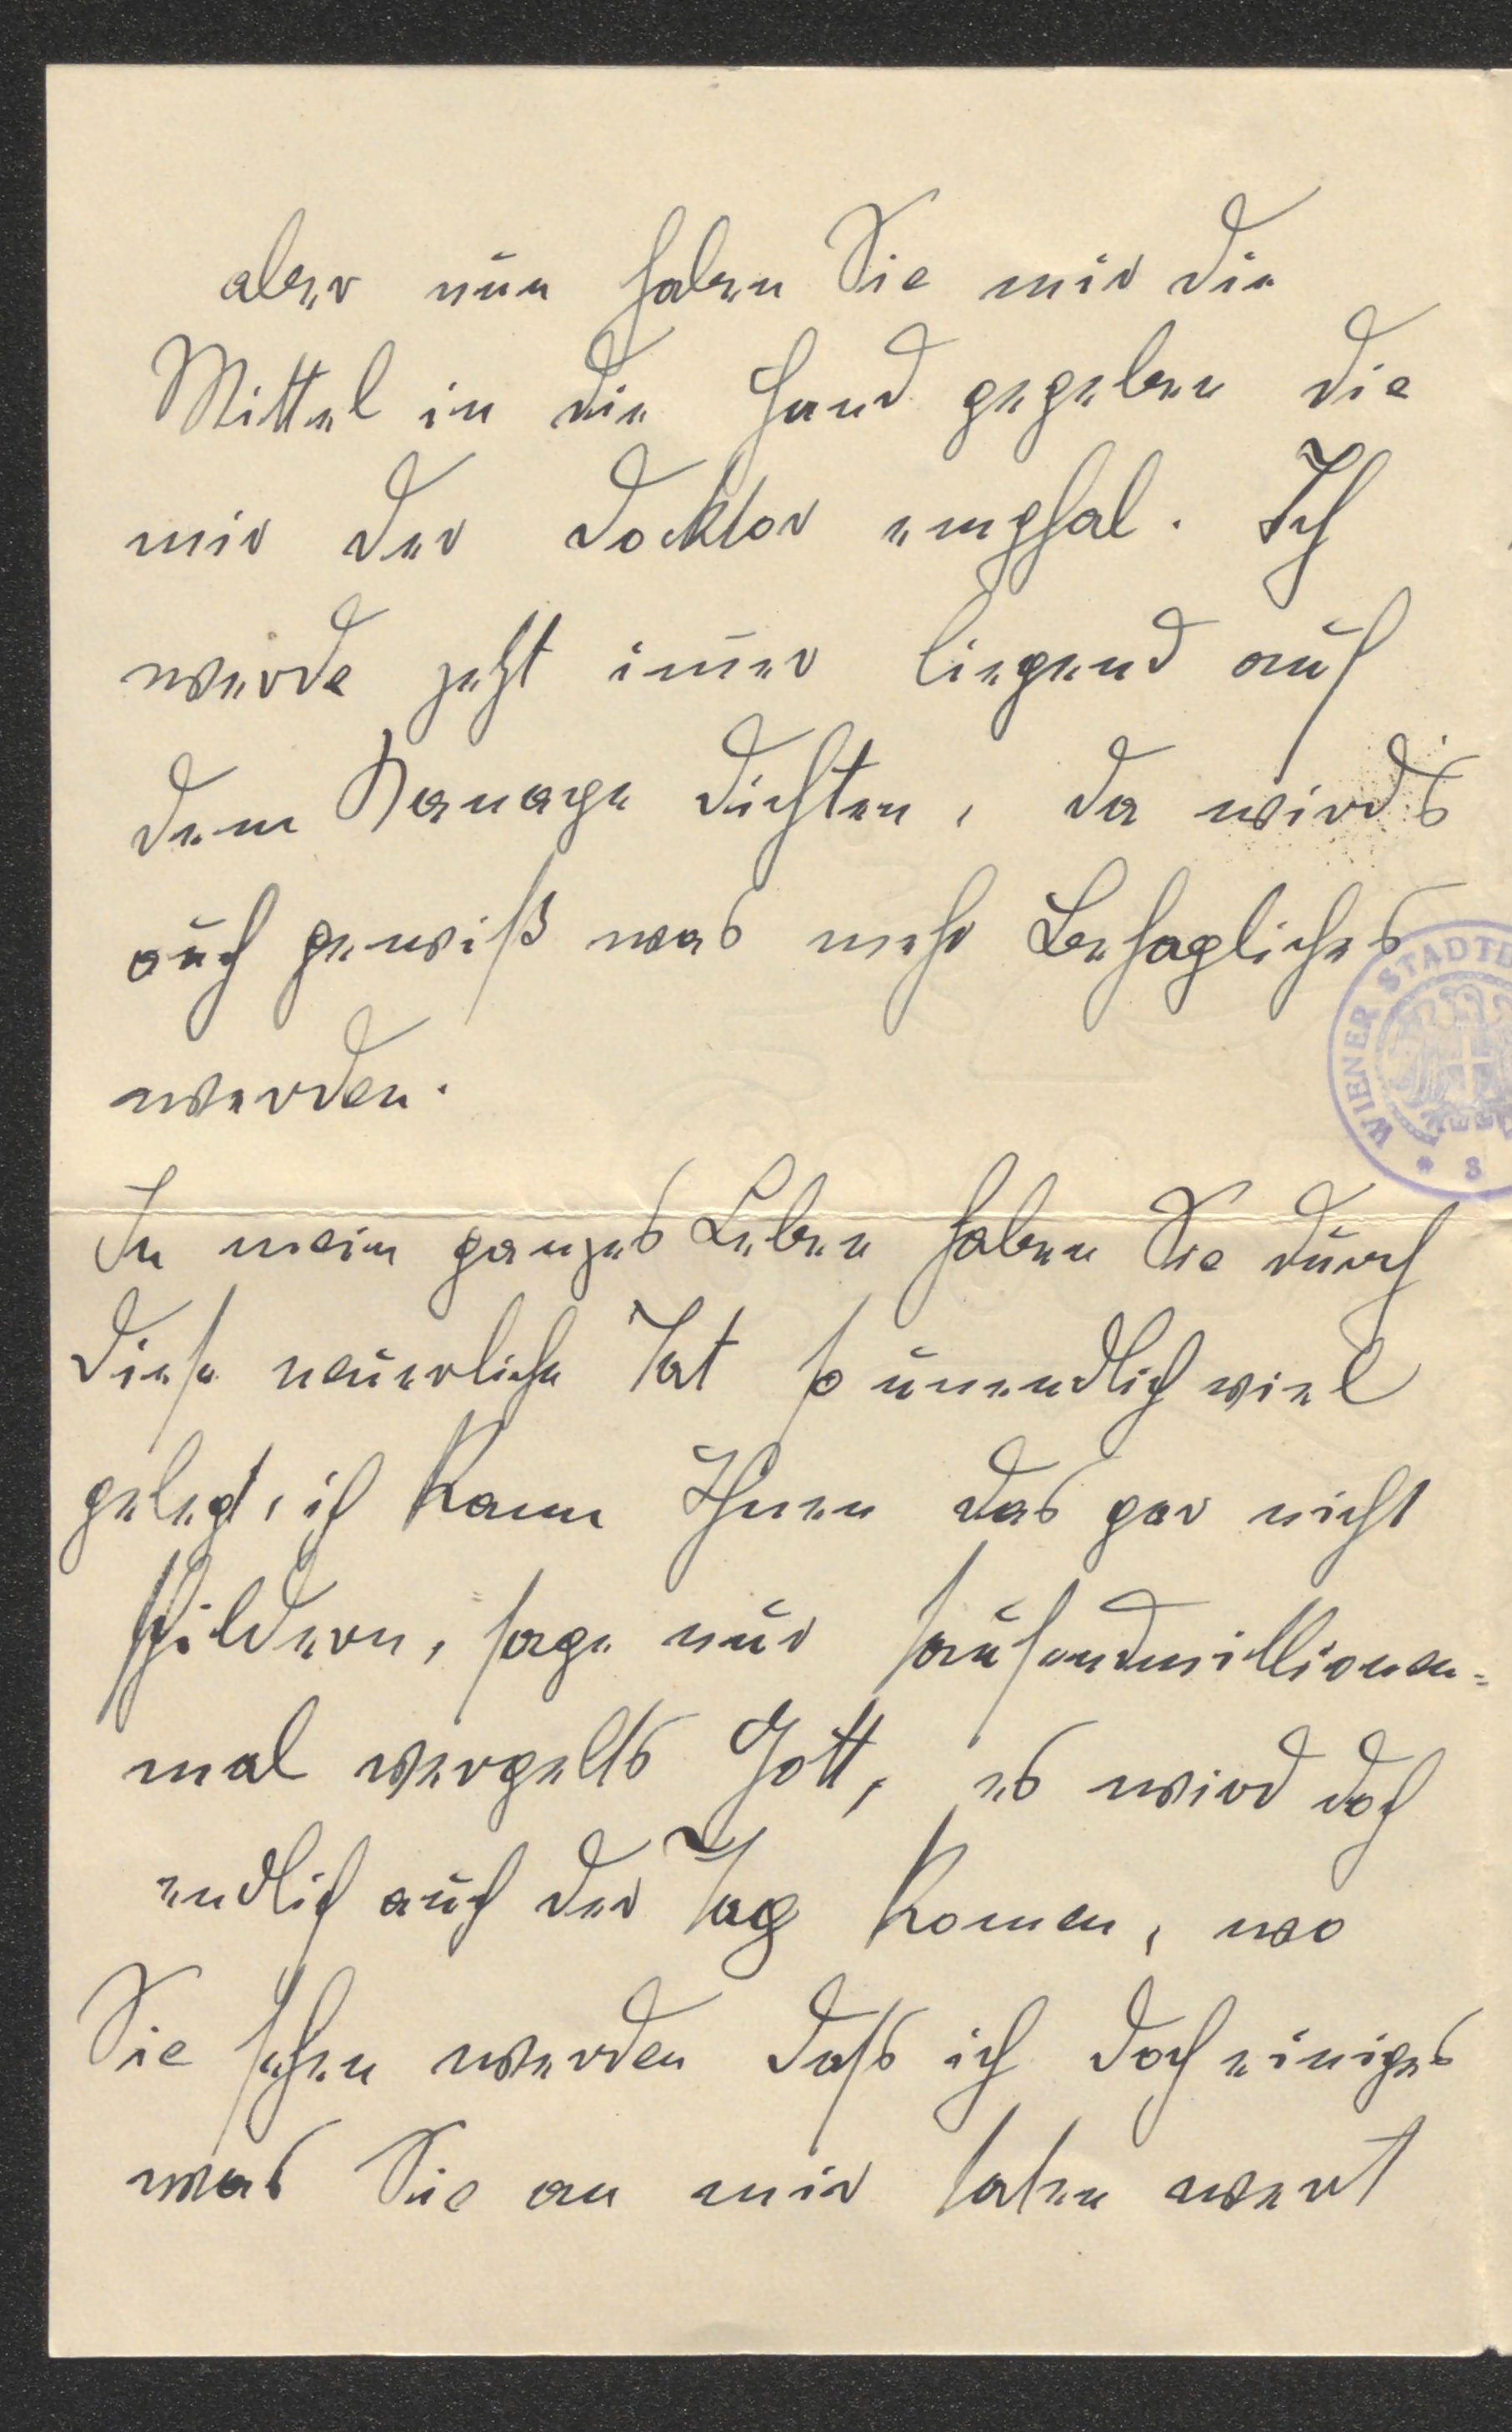 aber nun haben Sie mir die
Mittel in die Hand gegeben die
mir der Docktor empfhal. Ich
werde jetzt im̅er liegend auf
dem Kanape dichten, da wird's
auch gewiß was mehr Behagliches
werden.
In mein ganzes Leben haben Sie durch
diese neuerliche Tat so unendlich viel
gelegt, ich kann Ihnen das gar nicht
schildern, sage nur tausendmillionen=
mal vergelts Gott, es wird doch
endlich auch der Tag komen, wo
Sie sehen werden dass ich doch einiges
was Sie an mir taten wert
WIENER STADTB